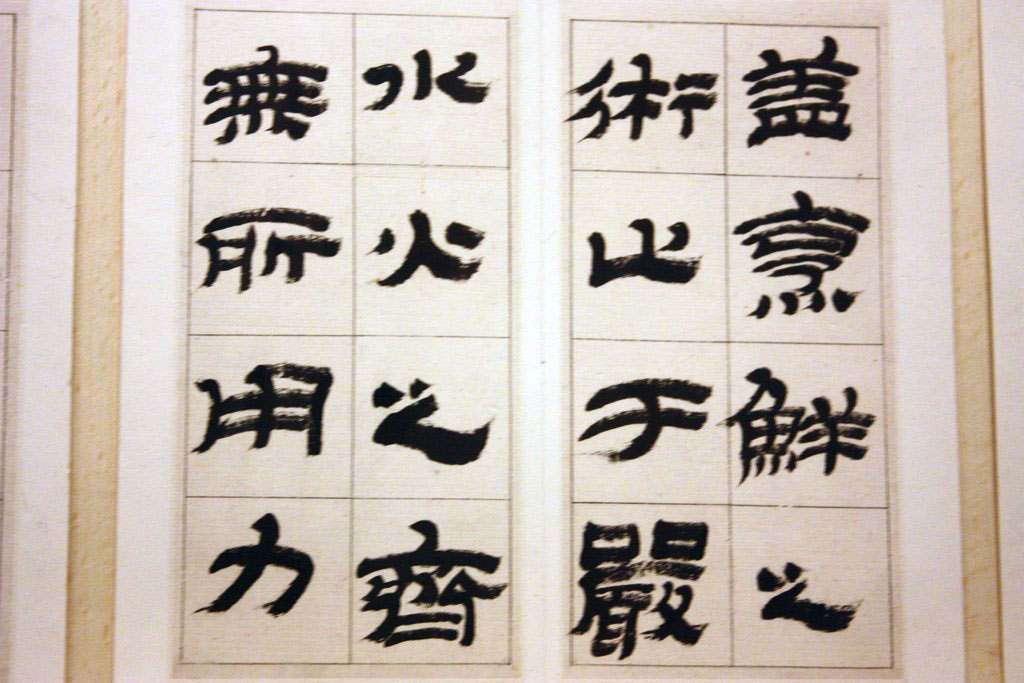 盖烹鮮之
術止于嚴
水火之齊
無所用力